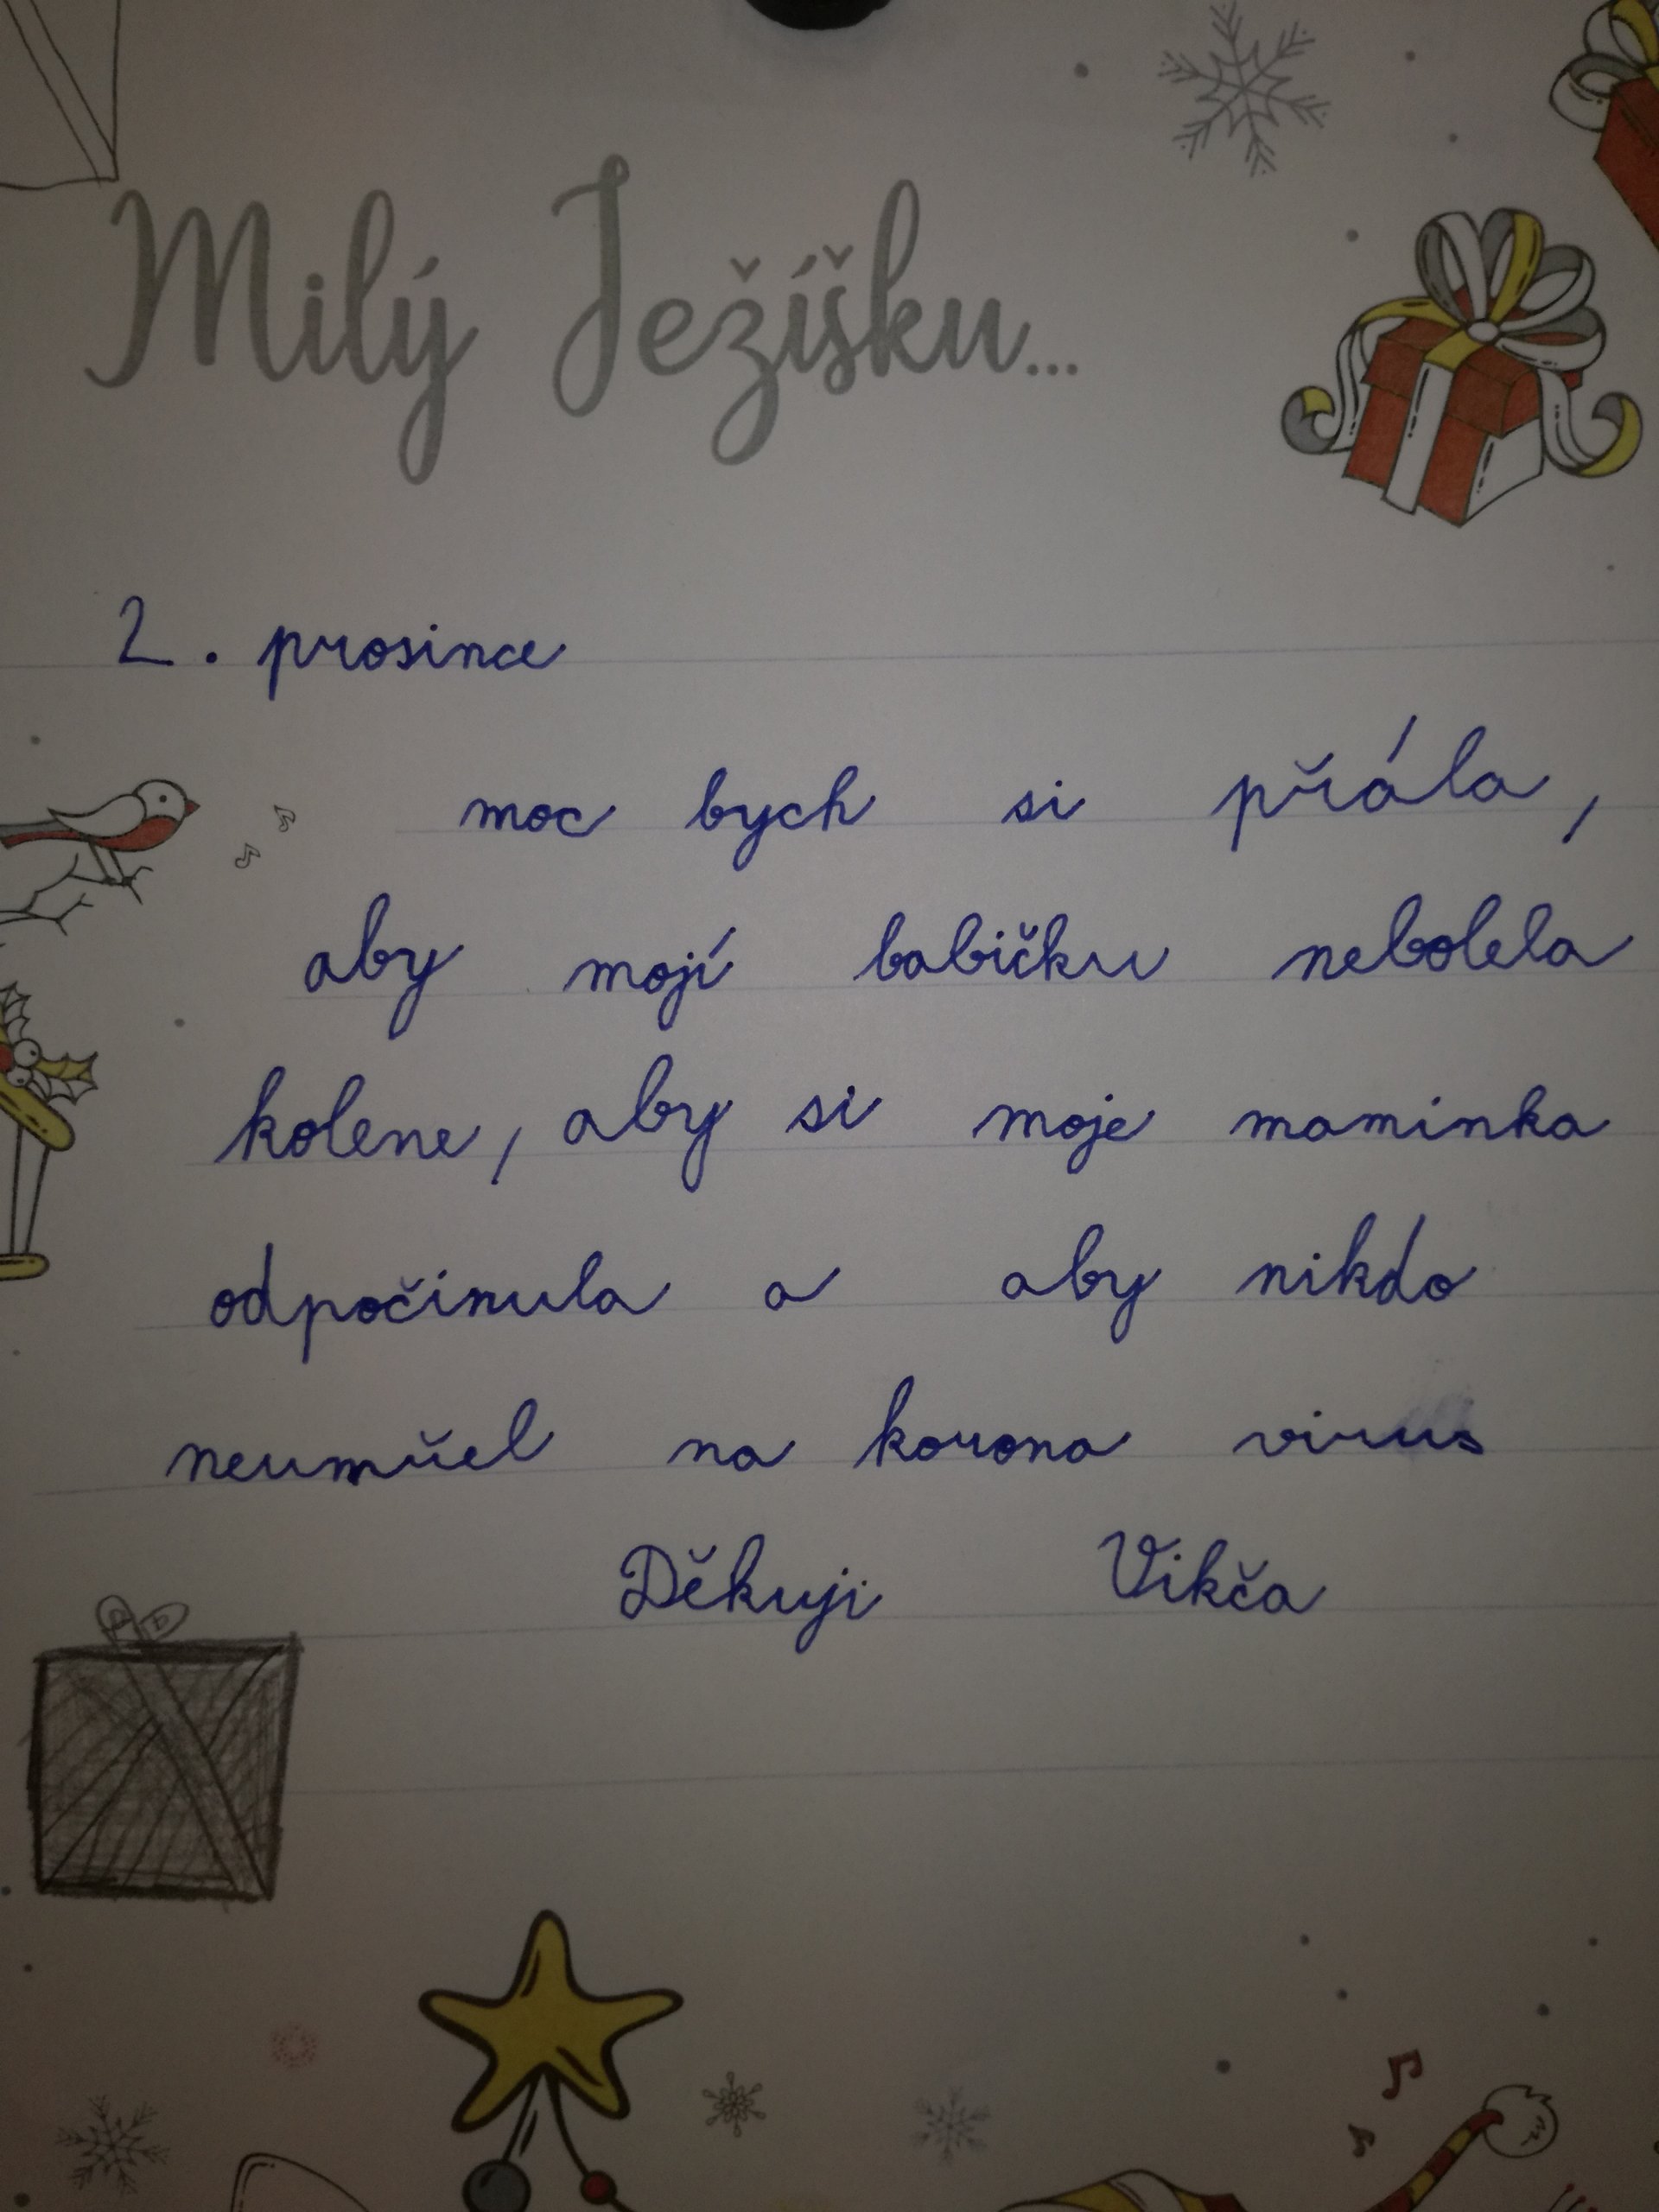 Milý Ježíšku...
2. prosince
moc bych si přála,
aby mojí babičku nebolela
kolene, aby si moje maminka
odpočinula a aby nikdo
neumřel na korona virus
Děkuji Vikča